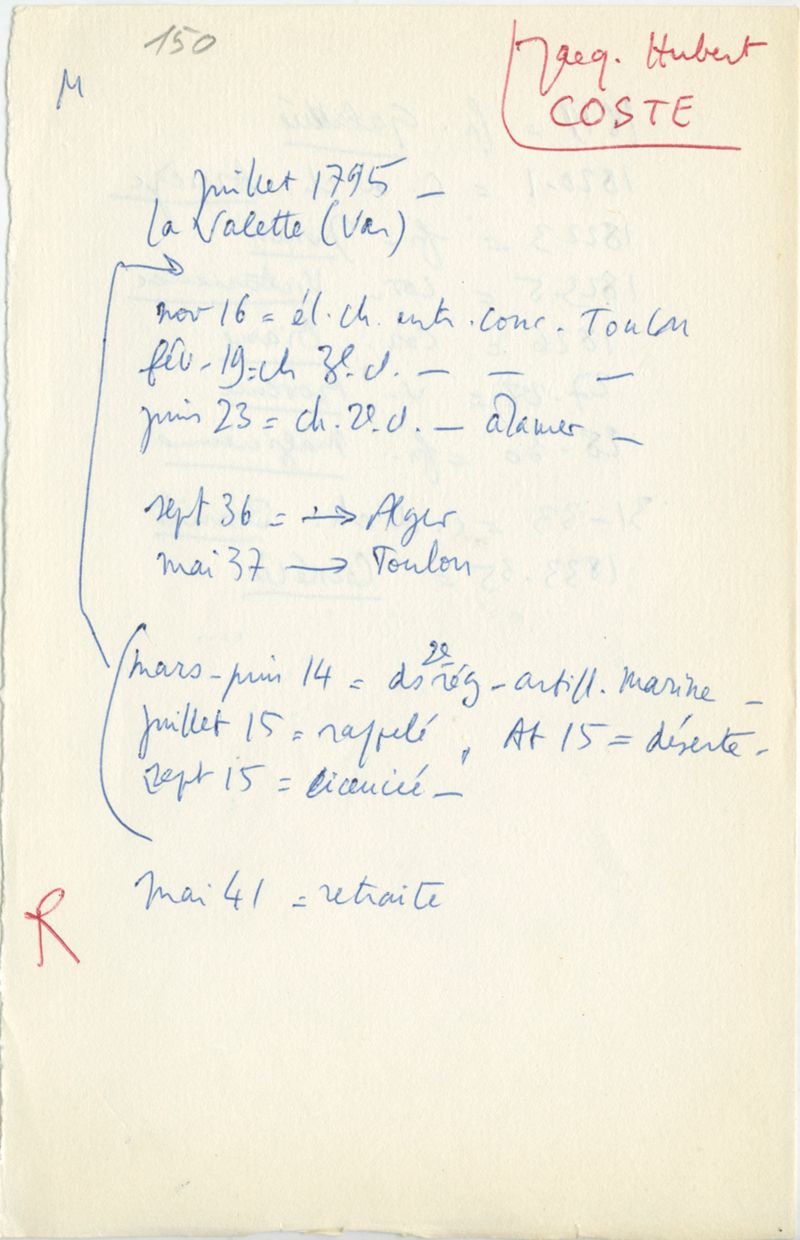 150
M
Jacq. Hubert
COSTE
Juillet 1795 —
La Valette (Var)
nov 16 = él. ch. entr. conc. Toulon
fév. 19 = ch 3e cl. — — —
juin 23 = ch. 2e cl. — à la mer —
sept 36 = → Alger
mai 37 → Toulon
mars-juin 14 = ds 2e rég - artill. Marine —
juillet 15 = rappelé, At 15 = déserte -
sept 15 = licencié —
Mai 41 = retraite
R